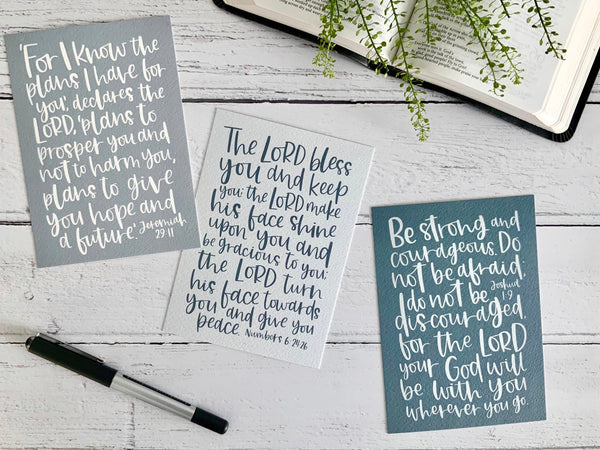 'For I know the
plans I have for
you,' declares the
LORD, 'plans to
prosper you and
not to harm you,
plans to give
you hope and
a future.' Jeremiah
29:11
The LORD bless
you and keep
you; the LORD make
his face shine
upon you and
be gracious to you;
the LORD turn
his face towards
you and give you
peace. Numbers 6:24-26
Be strong and
courageous. Do
not be afraid;
do not be Joshua 1:9
discouraged,
for the LORD
your God will
be with you
wherever you go.